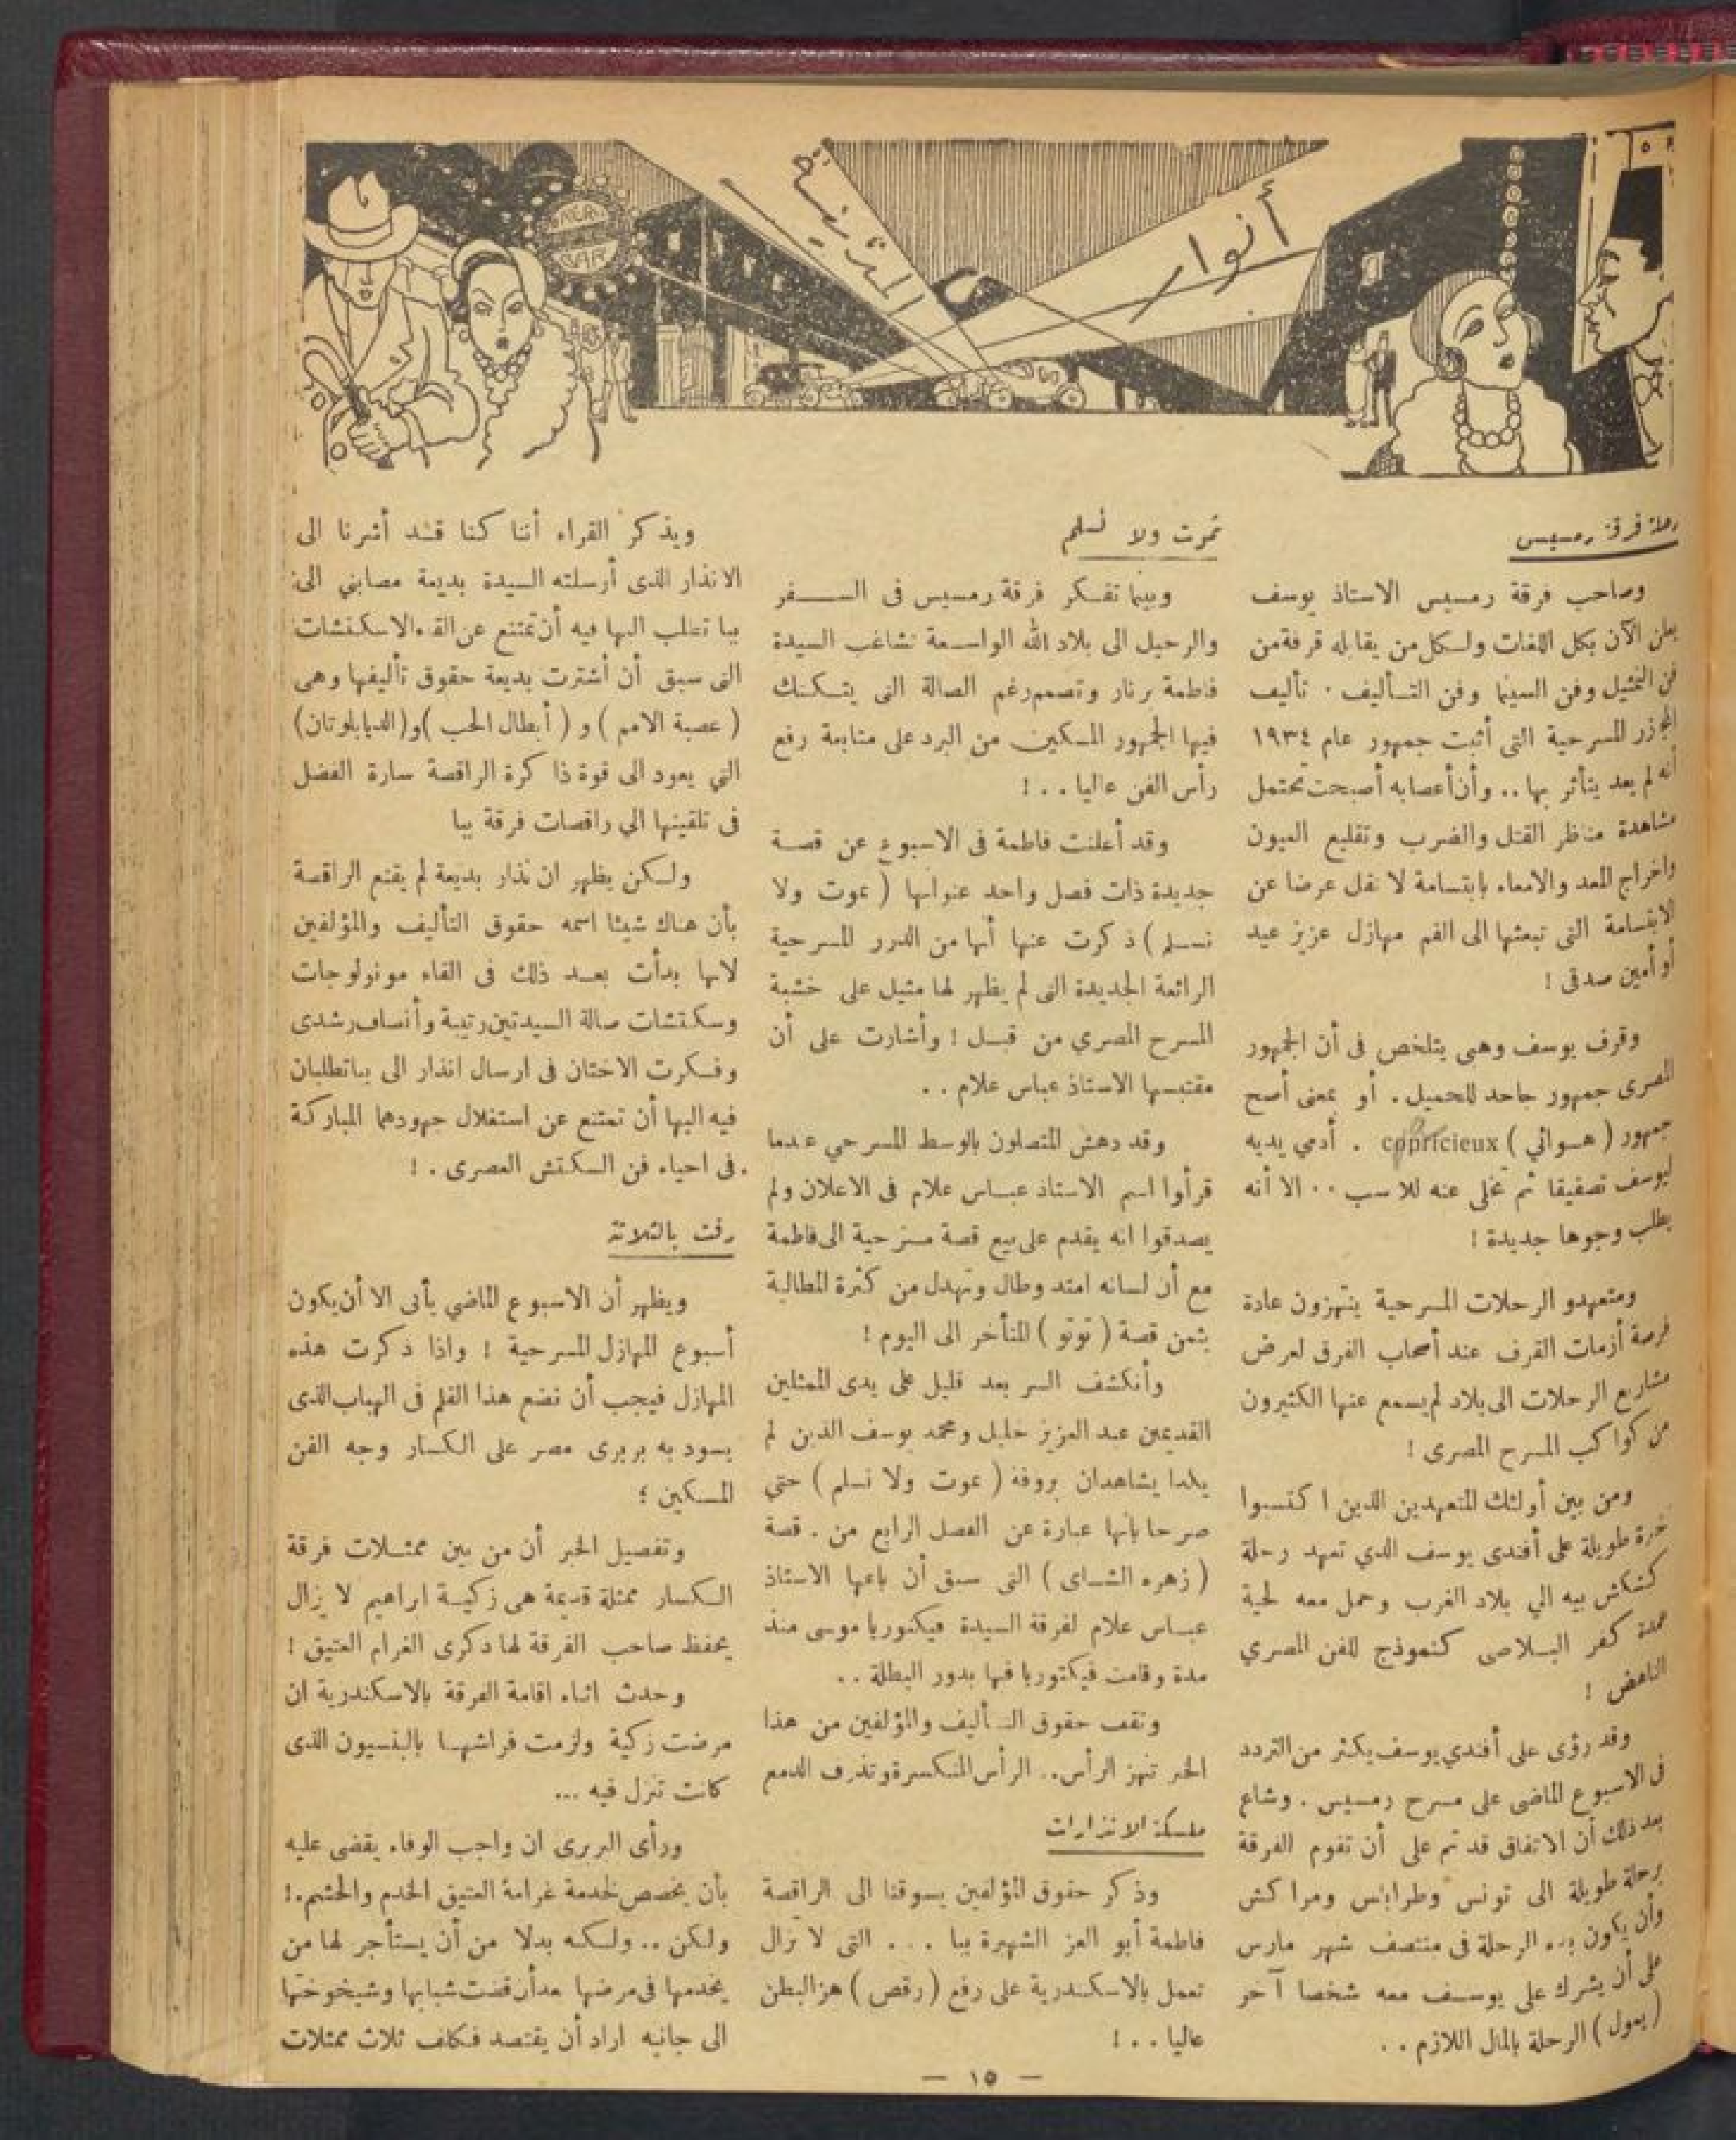 أنوار المدينة
رحلة فرقة رمسيس
وصاحب فرقة رمسيس الاستاذ يوسف
يعلن الآن بكل اللغات ولكل من يقابله قرفة من
فن التمثيل وفن السينما وفن التأليف . تأليف
المجازر المسرحية التى أثبت جمهور عام ١٩٣٤
أنه لم يعد يتأثر بها .. وأن أعصابه أصبحت تحتمل
مشاهدة مناظر القتل والضرب وتقليع العيون
واخراج المعد والامعاء بابتسامة لا تقل عرضا عن
الابتسامة التى تبعثها الى الفم مهازل عزيز عيد
أو أمين صدقى !
وقرف يوسف وهبى يتلخص فى أن الجمهور
المصرى جمهور جاحد للجميل . أو بمعنى أصح
جمهور ( هوائي ) capricieux . أدمي يديه
ليوسف تصفيقا ثم تخلى عنه للاسبب .. الا أنه
يطلب وجوها جديدة !
ومتعهدو الرحلات المسرحية ينتهزون عادة
فرصة أزمات القرف عند أصحاب الفرق لعرض
مشاريع الرحلات الى بلاد لم يسمع عنها الكثيرون
من كواكب المسرح المصرى !
ومن بين أولئك المتعهدين الذين اكتسبوا
خبرة طويلة على أفندى يوسف الذي تعهد رحلة
كشكش بيه الي بلاد الغرب وحمل معه لحية
عمدة كفر البلاصى كنموذج للفن المصري
الناهض !
وقد رؤى على أفندي يوسف يكثر من التردد
فى الاسبوع الماضى على مسرح رمسيس . وشاع
بعد ذلك أن الاتفاق قد تم على أن تقوم الفرقة
برحلة طويلة الى تونس وطرابلس ومراكش
وأن يكون بدء الرحلة فى منتصف شهر مارس
على أن يشرك على يوسف معه شخصا آخر
( يمول ) الرحلة بالمال اللازم ..
نموت ولا نسلم
وبينما تفكر فرقة رمسيس فى السفر
والرحيل الى بلاد الله الواسعة تشاغب السيدة
فاطمة برنار وتصمم رغم الصالة التى يتكتك
فيها الجمهور المسكين من البرد على متابعة رفع
رأس الفن عاليا .. !
وقد أعلنت فاطمة فى الاسبوع عن قصة
جديدة ذات فصل واحد عنوانها ( نموت ولا
نسلم ) ذكرت عنها أنها من الدرر المسرحية
الرائعة الجديدة التى لم يظهر لها مثيل على خشبة
المسرح المصري من قبل ! وأشارت على أن
مقتبسها الاستاذ عباس علام ..
وقد دهش المتصلون بالوسط المسرحي عندما
قرأوا اسم الاستاذ عباس علام فى الاعلان ولم
يصدقوا انه يقدم على بيع قصة مسرحية الى فاطمة
مع أن لسانه امتد وطال وتهدل من كثرة المطالبة
بثمن قصة ( توتو ) المتأخر الى اليوم !
وأنكشف السر بعد قليل على يدى الممثلين
القديمين عبد العزيز خليل ومحمد يوسف الذين لم
يكدا يشاهدان بروفة ( نموت ولا نسلم ) حتي
صرحا بأنها عبارة عن الفصل الرابع من . قصة
( زهره الشاى ) التى سبق أن باعها الاستاذ
عباس علام لفرقة السيدة فيكتوريا موسى منذ
مدة وقامت فيكتوريا فيها بدور البطلة ..
وتقف حقوق التأليف والمؤلفين من هذا
الخبر تهز الرأس.. الرأس المنكسرة وتذرف الدمع
ملكة الانذارات
وذكر حقوق المؤلفين يسوقنا الى الراقصة
فاطمة أبو العز الشهيرة ببا ... التى لا تزال
تعمل بالاسكندرية على رفع ( رقص ) هز البطن
عاليا .. !
ويذكر القراء أننا كنا قد أشرنا الى
الانذار الذى أرسلته السيدة بديعة مصابني الى
ببا تطلب اليها فيه أن تمتنع عن القاء الاسكتشات
التى سبق أن أشترت بديعة حقوق تأليفها وهى
( عصبة الامم ) و ( أبطال الحب ) و ( الديابلوتان )
التي يعود الى قوة ذاكرة الراقصة سارة الفضل
فى تلقينها الي راقصات فرقة ببا
ولكن يظهر ان نذار بديعة لم يقنع الراقصة
بأن هناك شيئا اسمه حقوق التأليف والمؤلفين
لانها بدأت بعد ذلك فى القاء مونولوجات
وسكتشات صالة السيدتين رتيبة وأنصاف رشدى
وفكرت الاختان فى ارسال انذار الى ببا تطلبان
فيه اليها أن تمتنع عن استغلال جهودهما المباركة
فى احياء فن السكتش العصرى . !
رفت بالثلاثة
ويظهر أن الاسبوع الماضي يأبى الا أن يكون
أسبوع المهازل المسرحية ! واذا ذكرت هذه
المهازل فيجب أن نضع هذا القلم فى الهباب الذى
يسود به بربرى مصر على الكسار وجه الفن
المسكين ؛
وتفصيل الخبر أن من بين ممثلات فرقة
الكسار ممثلة قديمة هى زكية ابراهيم لا يزال
يحفظ صاحب الفرقة لها ذكرى الغرام العتيق !
وحدث اثناء اقامة الفرقة بالاسكندرية ان
مرضت زكية ولزمت فراشها بالبنسيون الذى
كانت تنزل فيه ...
ورأى البربرى ان واجب الوفاء يقضى عليه
بأن يخصص لخدمة غرامة العتيق الخدم والحشم.!
ولكن .. ولكنه بدلا من أن يستأجر لها من
يخدمها فى مرضها بعد أن قضت شبابها وشيخوختها
الى جانبه اراد أن يقتصد فكلف ثلاث ممثلات
— ١٥ —